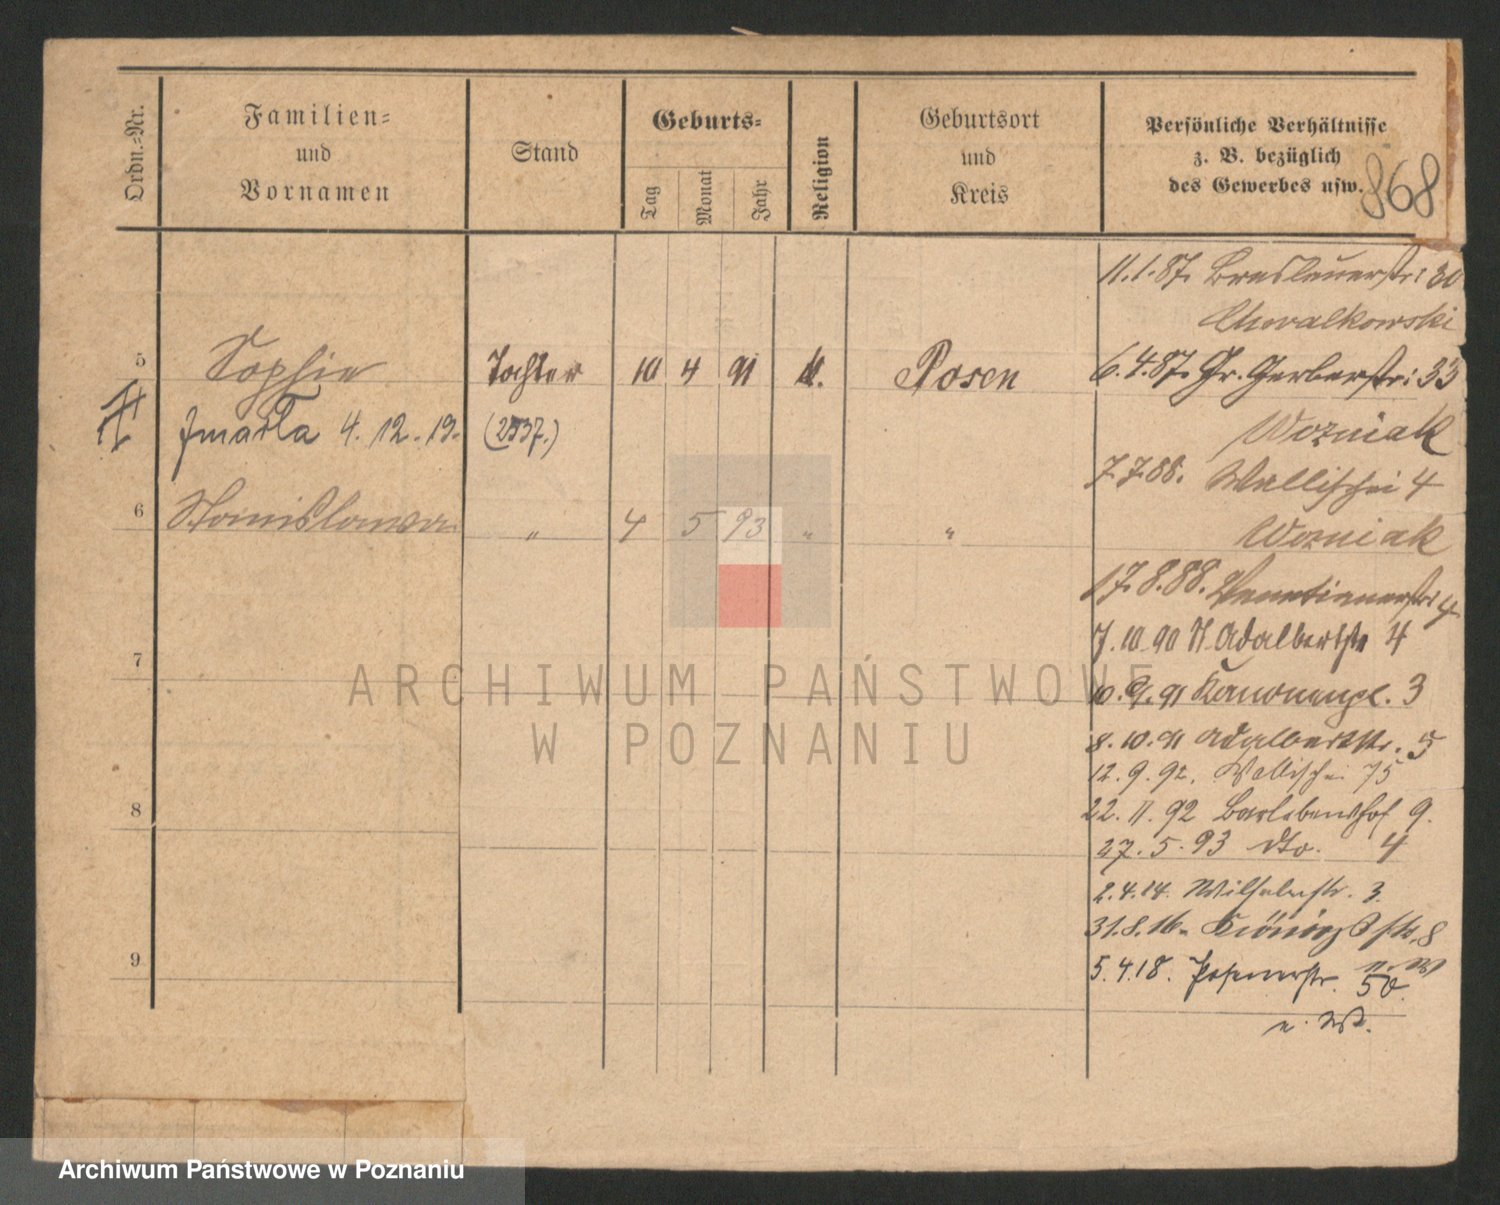 Ordn.-Nr.
Familien=
und
Vornamen
Stand
Geburts=
Tag
Monat
Jahr
Religion
Geburtsort
und
Kreis
Persönliche Verhältnisse
z. B. bezüglich
des Gewerbes usw.
868
11.1.87. Breslauerstr: 30
Chwalkowski
5 Sophie Tochter 10 4 91 k. Posen
6.4.87. Gr. Gerberstr: 33
zmarła 4. 12. 19. (2537.)
Wozniak
7.7.88. Wallischei 4
6 Stanislawa „ 4 5 93 „ „
Wozniak
17.8.88. Venetianerstr 4
7.10.90 St. Adalbertstr 4
7
10.9.91 Kanonenpl. 3
8.10.91 Adalbertstr. 3
12.9.92. Wallischei 75
8
22.11.92 Barlebenshof 9.
27.5.93 dto. 4
2.4.14. Wilhelmstr. 3.
31.8.16. Königstr. 8
9
5.4.18. Posenerstr. 50.
ARCHIWUM PAŃSTWOWE
W POZNANIU
Archiwum Państwowe w Poznaniu